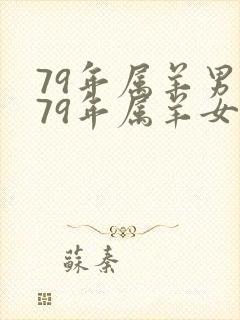 79年属羊男
79年属羊女
蘇秦